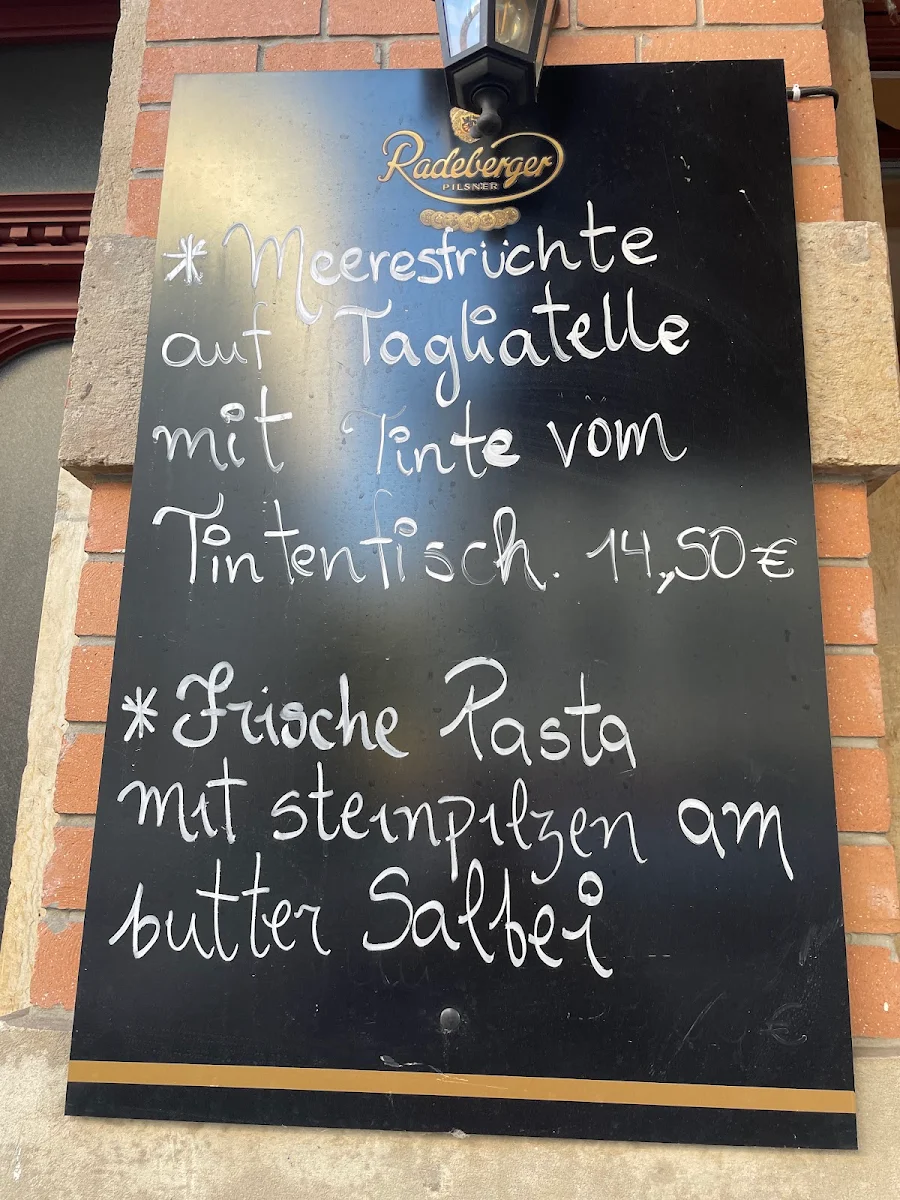 Radeberger
PILSNER
* Meeresfrüchte
auf Tagliatelle
mit Tinte vom
Tintenfisch. 14,50€
* Frische Pasta
mit steinpilzen am
butter Salbei